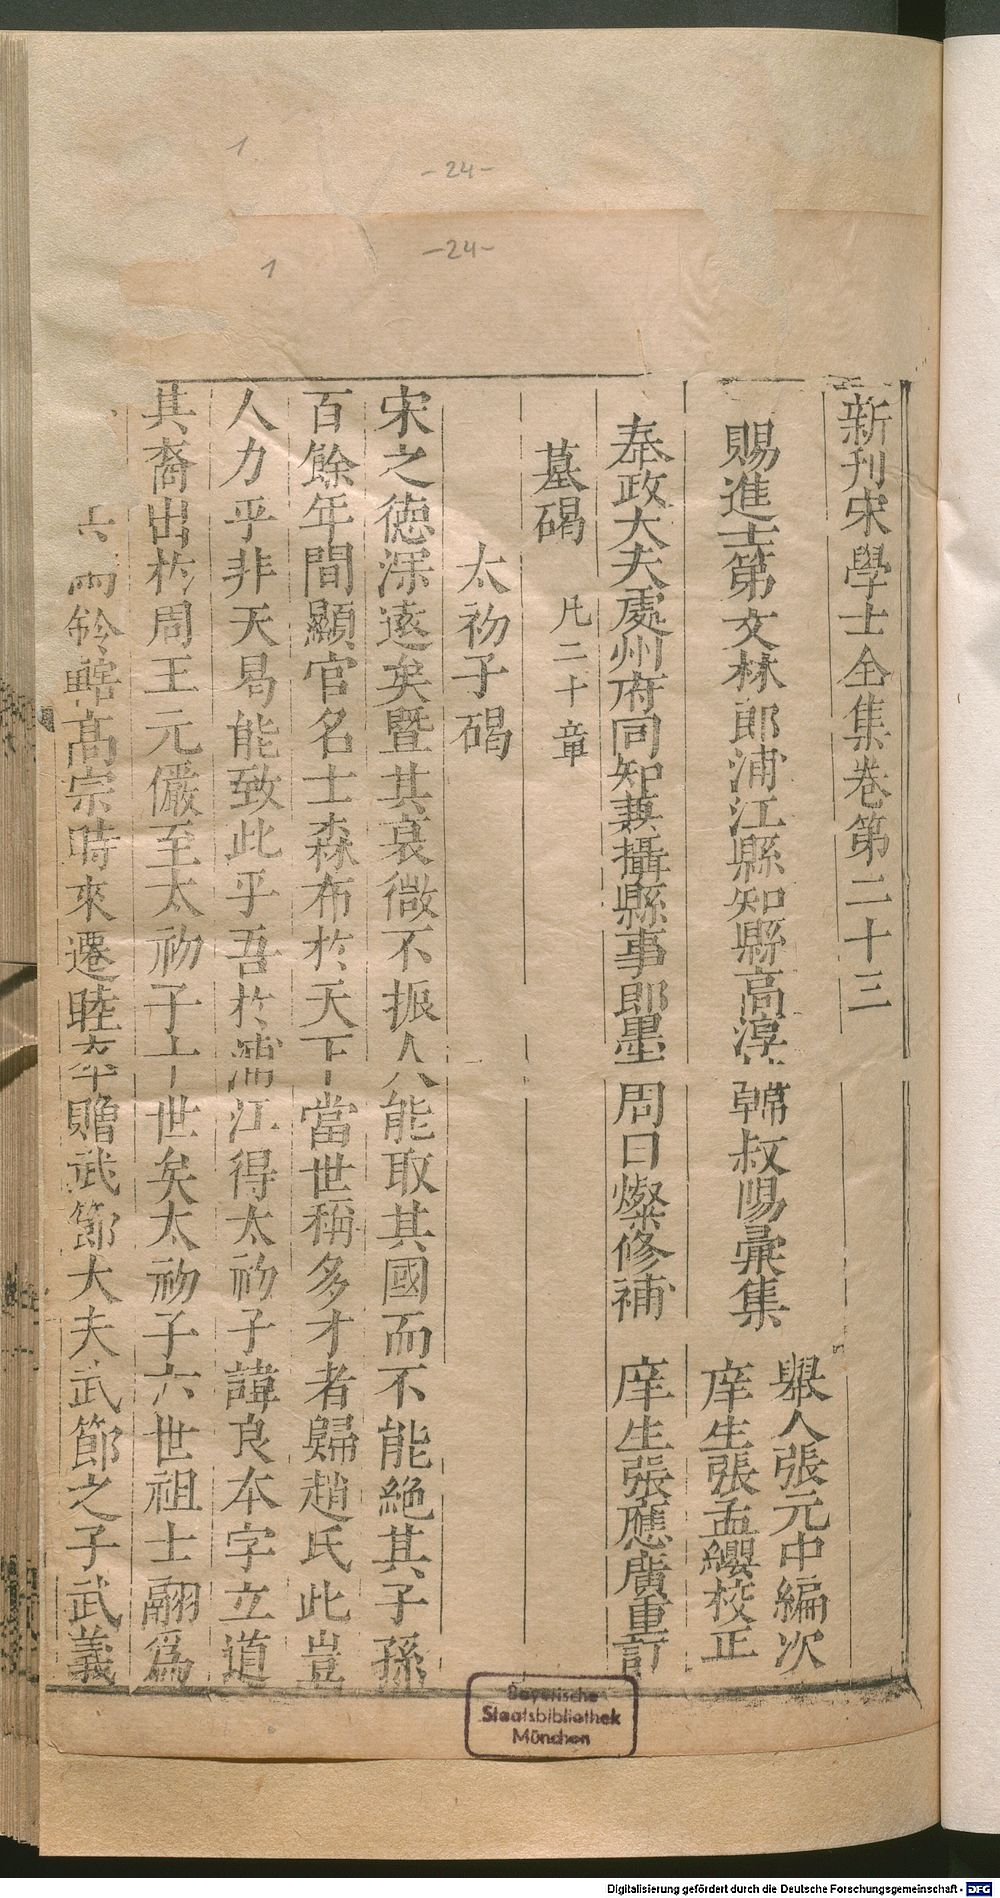 1
-24-
1
-24-
新刊宋學士全集卷第二十三
賜進士第文林郎浦江縣知縣高淳韓叔陽彙集
舉人張元中編次
庠生張孟纓校正
奉政大夫處州府同知兼攝縣事即墨周日燦修補
庠生張應廣重訂
墓碣 凡二十章
太初子碣
宋之德深遠矣暨其衰微不振人能取其國而不能絕其子孫
百餘年間顯官名士森布於天下當世稱多才者歸趙氏此豈
人力乎非天曷能致此乎吾於浦江得太初子諱良本字立道
其裔出於周王元儼至太初子十世矣太初子六世祖士翮爲
兩鈐轄高宗時來遷睦卒贈武節大夫武節之子武義
Bayerische
Staatsbibliothek
München
Digitalisierung gefördert durch die Deutsche Forschungsgemeinschaft - DFG